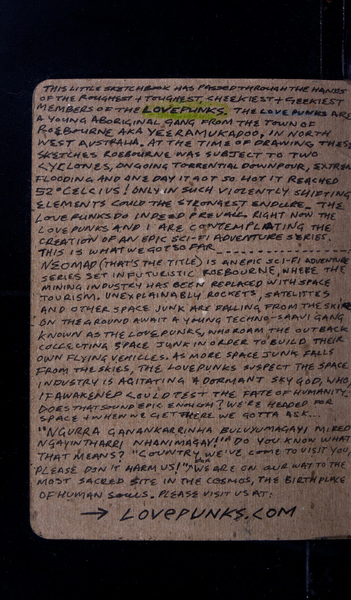 THIS LITTLE SKETCHBOOK HAS PASSED THROUGH THE HANDS
OF THE ROUGHEST + TOUGHEST, CHEEKIEST + GEEKIEST
MEMBERS OF THE LOVEPUNKS. THE LOVE PUNKS ARE
A YOUNG ABORIGINAL GANG FROM THE TOWN OF
ROEBOURNE AKA YEERAMUKADOO, IN NORTH
WEST AUSTRALIA. AT THE TIME OF DRAWING THESE
SKETCHES ROEBOURNE WAS SUBJECT TO TWO
CYCLONES, ONGOING TORRENTIAL DOWNPOUR, EXTREME
FLOODING AND ONE DAY IT GOT SO HOT IT REACHED
52° CELCIUS! ONLY IN SUCH VIOLENTLY SHIFTING
ELEMENTS COULD THE STRONGEST ENDURE. THE
LOVE PUNKS DO INDEED PREVAIL. RIGHT NOW THE
LOVE PUNKS AND I ARE CONTEMPLATING THE
CREATION OF AN EPIC SCI-FI ADVENTURE SERIES.
THIS IS WHAT WE GOT SO FAR
NEOMAD (THAT'S THE TITLE) IS AN EPIC SCI-FI ADVENTURE
SERIES SET IN FUTURISTIC ROEBOURNE, WHERE THE
MINING INDUSTRY HAS BEEN REPLACED WITH SPACE
TOURISM. UNEXPLAINABLY ROCKETS, SATELLITES
AND OTHER SPACE JUNK ARE FALLING FROM THE SKIES
ON THE GROUND AWAIT A YOUNG TECHNO-SAVVI GANG
KNOWN AS THE LOVE PUNKS, WHO ROAM THE OUTBACK
COLLECTING SPACE JUNK IN ORDER TO BUILD THEIR
OWN FLYING VEHICLES. AS MORE SPACE JUNK FALLS
FROM THE SKIES, THE LOVEPUNKS SUSPECT THE SPACE
INDUSTRY IS AGITATING A DORMANT SKY GOD, WHO,
IF AWAKENED COULD TEST THE FATE OF HUMANITY.
DOES THAT SOUND EPIC ENNUGH? WE'RE HEADED FOR
SPACE + WHEN WE GET THERE WE GOTTA ASK...
"NGURRA GANANKARRINHA BULUYUMAGAYI MIRED
NGAYINTHARRI NHANIMAGAYI!" DO YOU KNOW WHAT
THAT MEANS? "COUNTRY, WE'VE COME TO VISIT YOU,
PLEASE DON'T HARM US!" WE ARE ON OUR WAY TO THE
MOST SACRED SITE IN THE COSMOS, THE BIRTHPLACE
OF HUMAN SOULS. PLEASE VISIT US AT:
→ LOVEPUNKS.COM